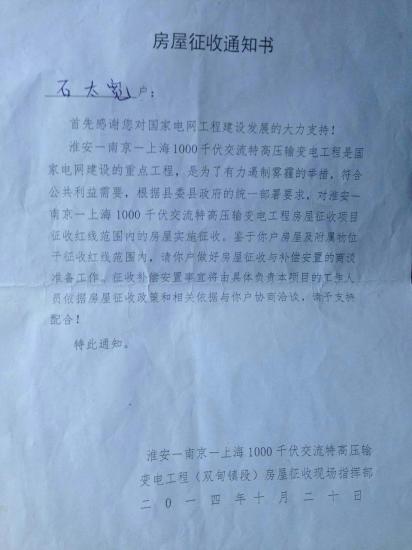 房屋征收通知书
石太宽户：
首先感谢您对国家电网工程建设发展的大力支持！
淮安—南京—上海1000千伏交流特高压输变电工程是国
家电网建设的重点工程，是为了有力遏制雾霾的举措，符合
公共利益需要，根据县委县政府的统一部署要求，对淮安—
南京—上海1000千伏交流特高压输变电工程房屋征收项目
征收红线范围内的房屋实施征收。鉴于你户房屋及附属物位
于征收红线范围内，请你户做好房屋征收与补偿安置的商谈
准备工作。征收补偿安置事宜将由具体负责本项目的工作人
员依据房屋征收政策和相关依据与你户协商洽谈，请予支持
配合！
特此通知。
淮安—南京—上海1000千伏交流特高压输
变电工程（双甸镇段）房屋征收现场指挥部
二〇一四年十月二十日